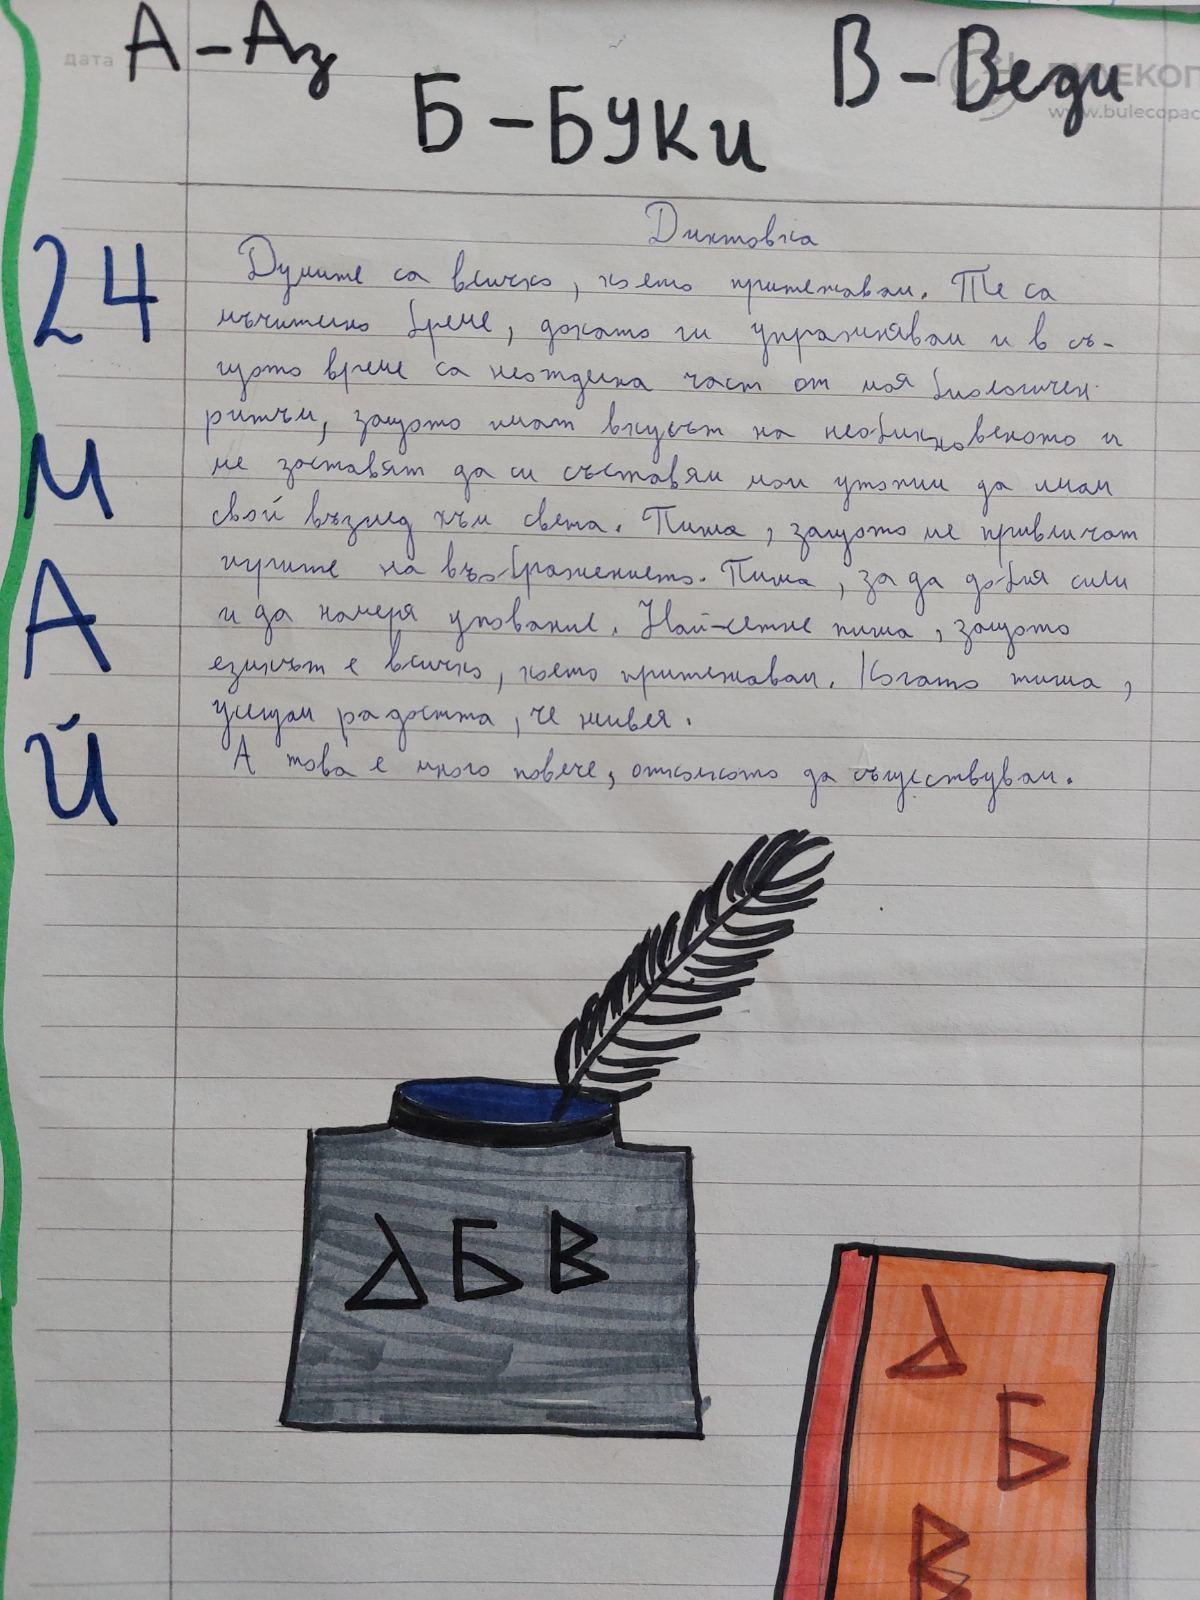 дата
А-Аз
Б-Буки
В-Веди
БУЛЕКОП
www.bulecopac
24
МАЙ
Диктовка
Думите са всичко, което притежавам. Те са
мъчително бреме, докато ги упражнявам и в съ-
щото време са неотделна част от моя биологичен
ритъм, защото имат вкусът на необикновеното и
ме заставят да си съставям мои утопии да имам
свой възглед към света. Пиша, защото ме привличат
игрите на въображението. Пиша, за да добия сили
и да намеря упование. Най-сетне пиша, защото
езикът е всичко, което притежавам. Когато пиша,
усещам радостта, че живея.
А това е много повече, отколкото да съществувам.
А Б В
А
Б
В